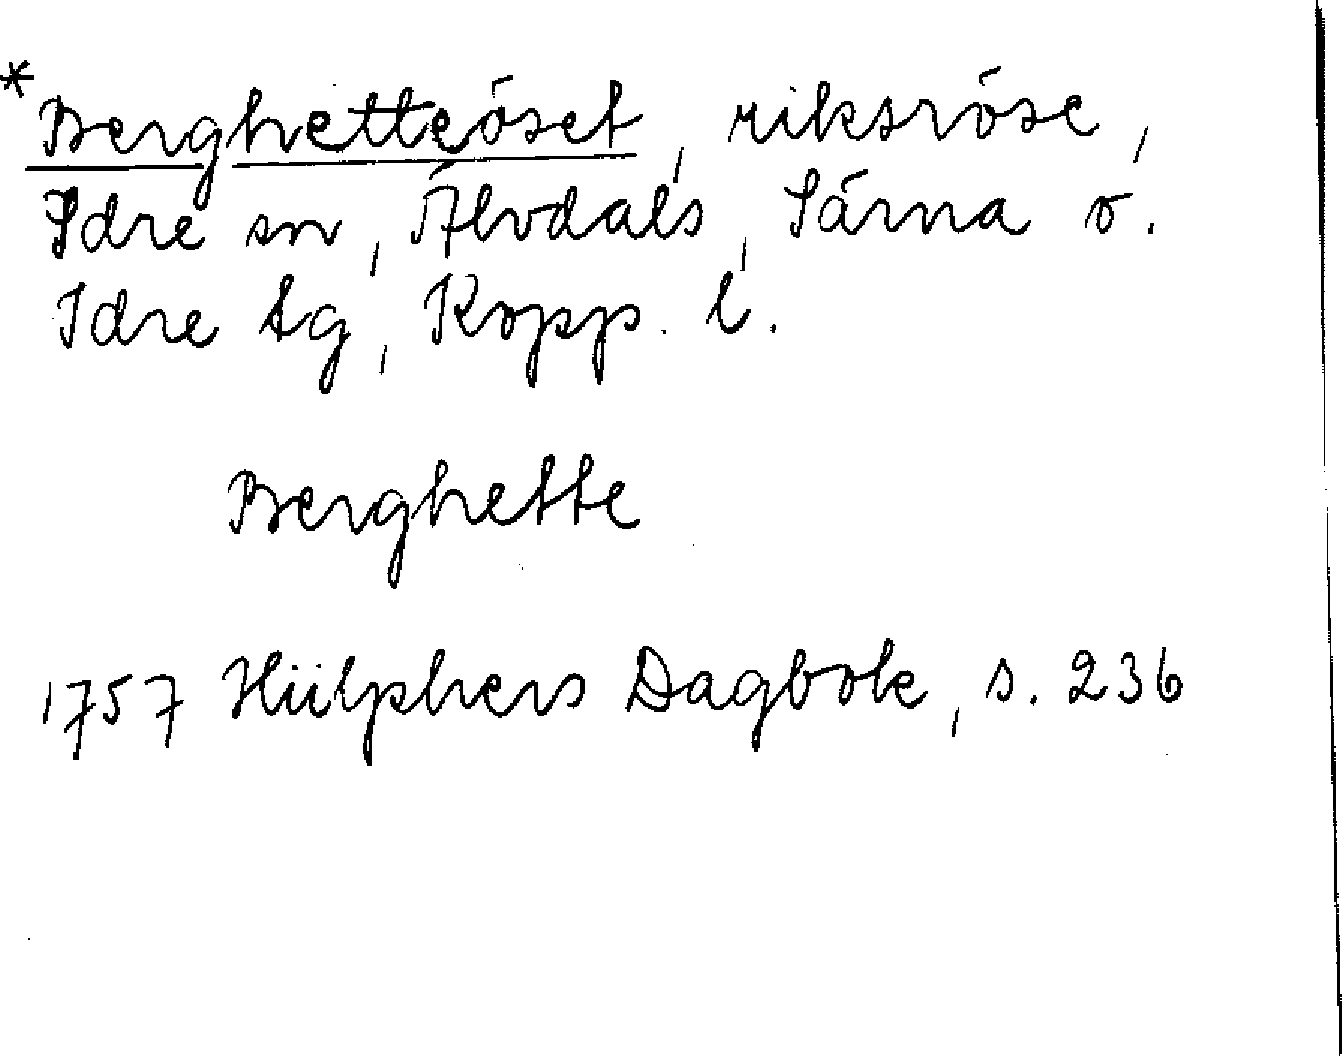 *Berghetteöset, riksröse,
Idre sn, Älvdals, Särna o.
Idre tg, Kopp. l.
Berghette
1757 Hülphers Dagbok, s. 236